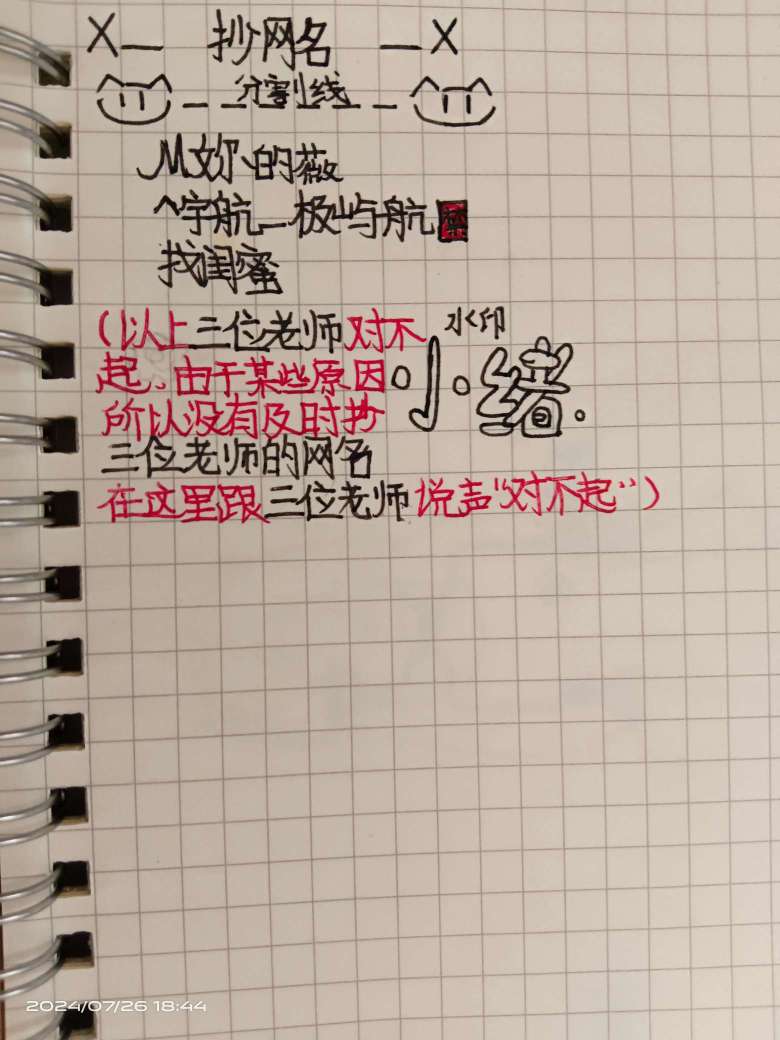 X— 抄网名 —X
--分割线--
M妳、的薇
^宇航_极屿航
找闺蜜
(以上三位老师对不
起、由于某些原因
所以没有及时抄
三位老师的网名
在这里跟三位老师说声“对不起”)
水印
小绪
2024/07/26 18:44